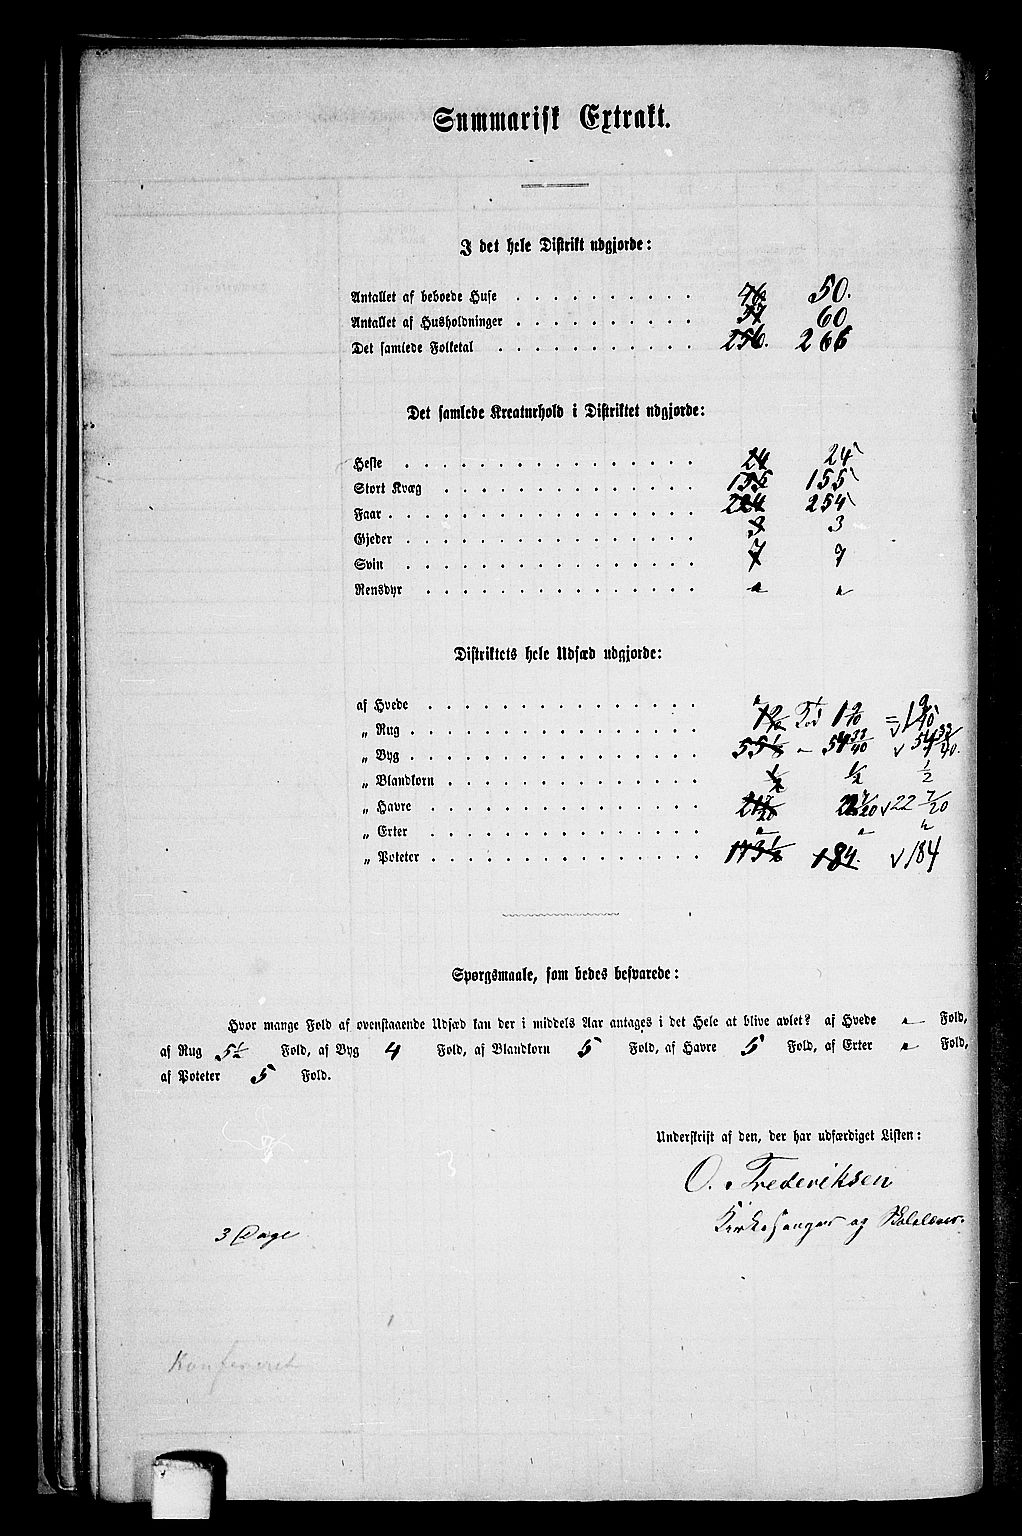 Summarisk Extrakt.
I det hele Distrikt udgjorde:
Antallet af beboede Huse . . . . . . . . . . 46 50.
Antallet af Husholdninger . . . . . . . . . . 57 60
Det samlede Folketal . . . . . . . . . . . 256. 266
Det samlede Kreaturhold i Distriktet udgjorde:
Heste . . . . . . . . . . . . . . . 24 24
Stort Kvæg . . . . . . . . . . . . . 155 155
Faar . . . . . . . . . . . . . . . . 224 254
Gjeder . . . . . . . . . . . . . . . 3 3
Svin . . . . . . . . . . . . . . . 7 9
Rensdyr . . . . . . . . . . . . . . „ „
Distriktets hele Udsæd udgjorde:
af Hvede . . . . . . . . . . . . „
„ Rug . . . . . . . . . . . . . Td 1 9/10 = 1 9/10
„ Byg . . . . . . . . . . . . . 55 1/2 - 54 33/40 v 54 33/40.
„ Blandkorn . . . . . . . . . . . 1/2 1/2 1/2
„ Havre . . . . . . . . . . . . 22 7/20 v 22 7/20
„ Erter . . . . . . . . . . . . „ „ „
„ Poteter . . . . . . . . . . . . 173 1/2 184. v 184
Spørgsmaale, som bedes besvarede:
Hvor mange Fold af ovenstaaende Udsæd kan der i middels Aar antages i det Hele at blive avlet? af Hvede „ Fold,
af Rug 5½ Fold, af Byg 4 Fold, af Blandkorn 5 Fold, af Havre 5 Fold, af Erter „ Fold,
af Poteter 5 Fold.
Underskrift af den, der har udfærdiget Listen:
O. Frederiksen
Kirkesanger og Skolelærer.
3 Dage
Konfereret